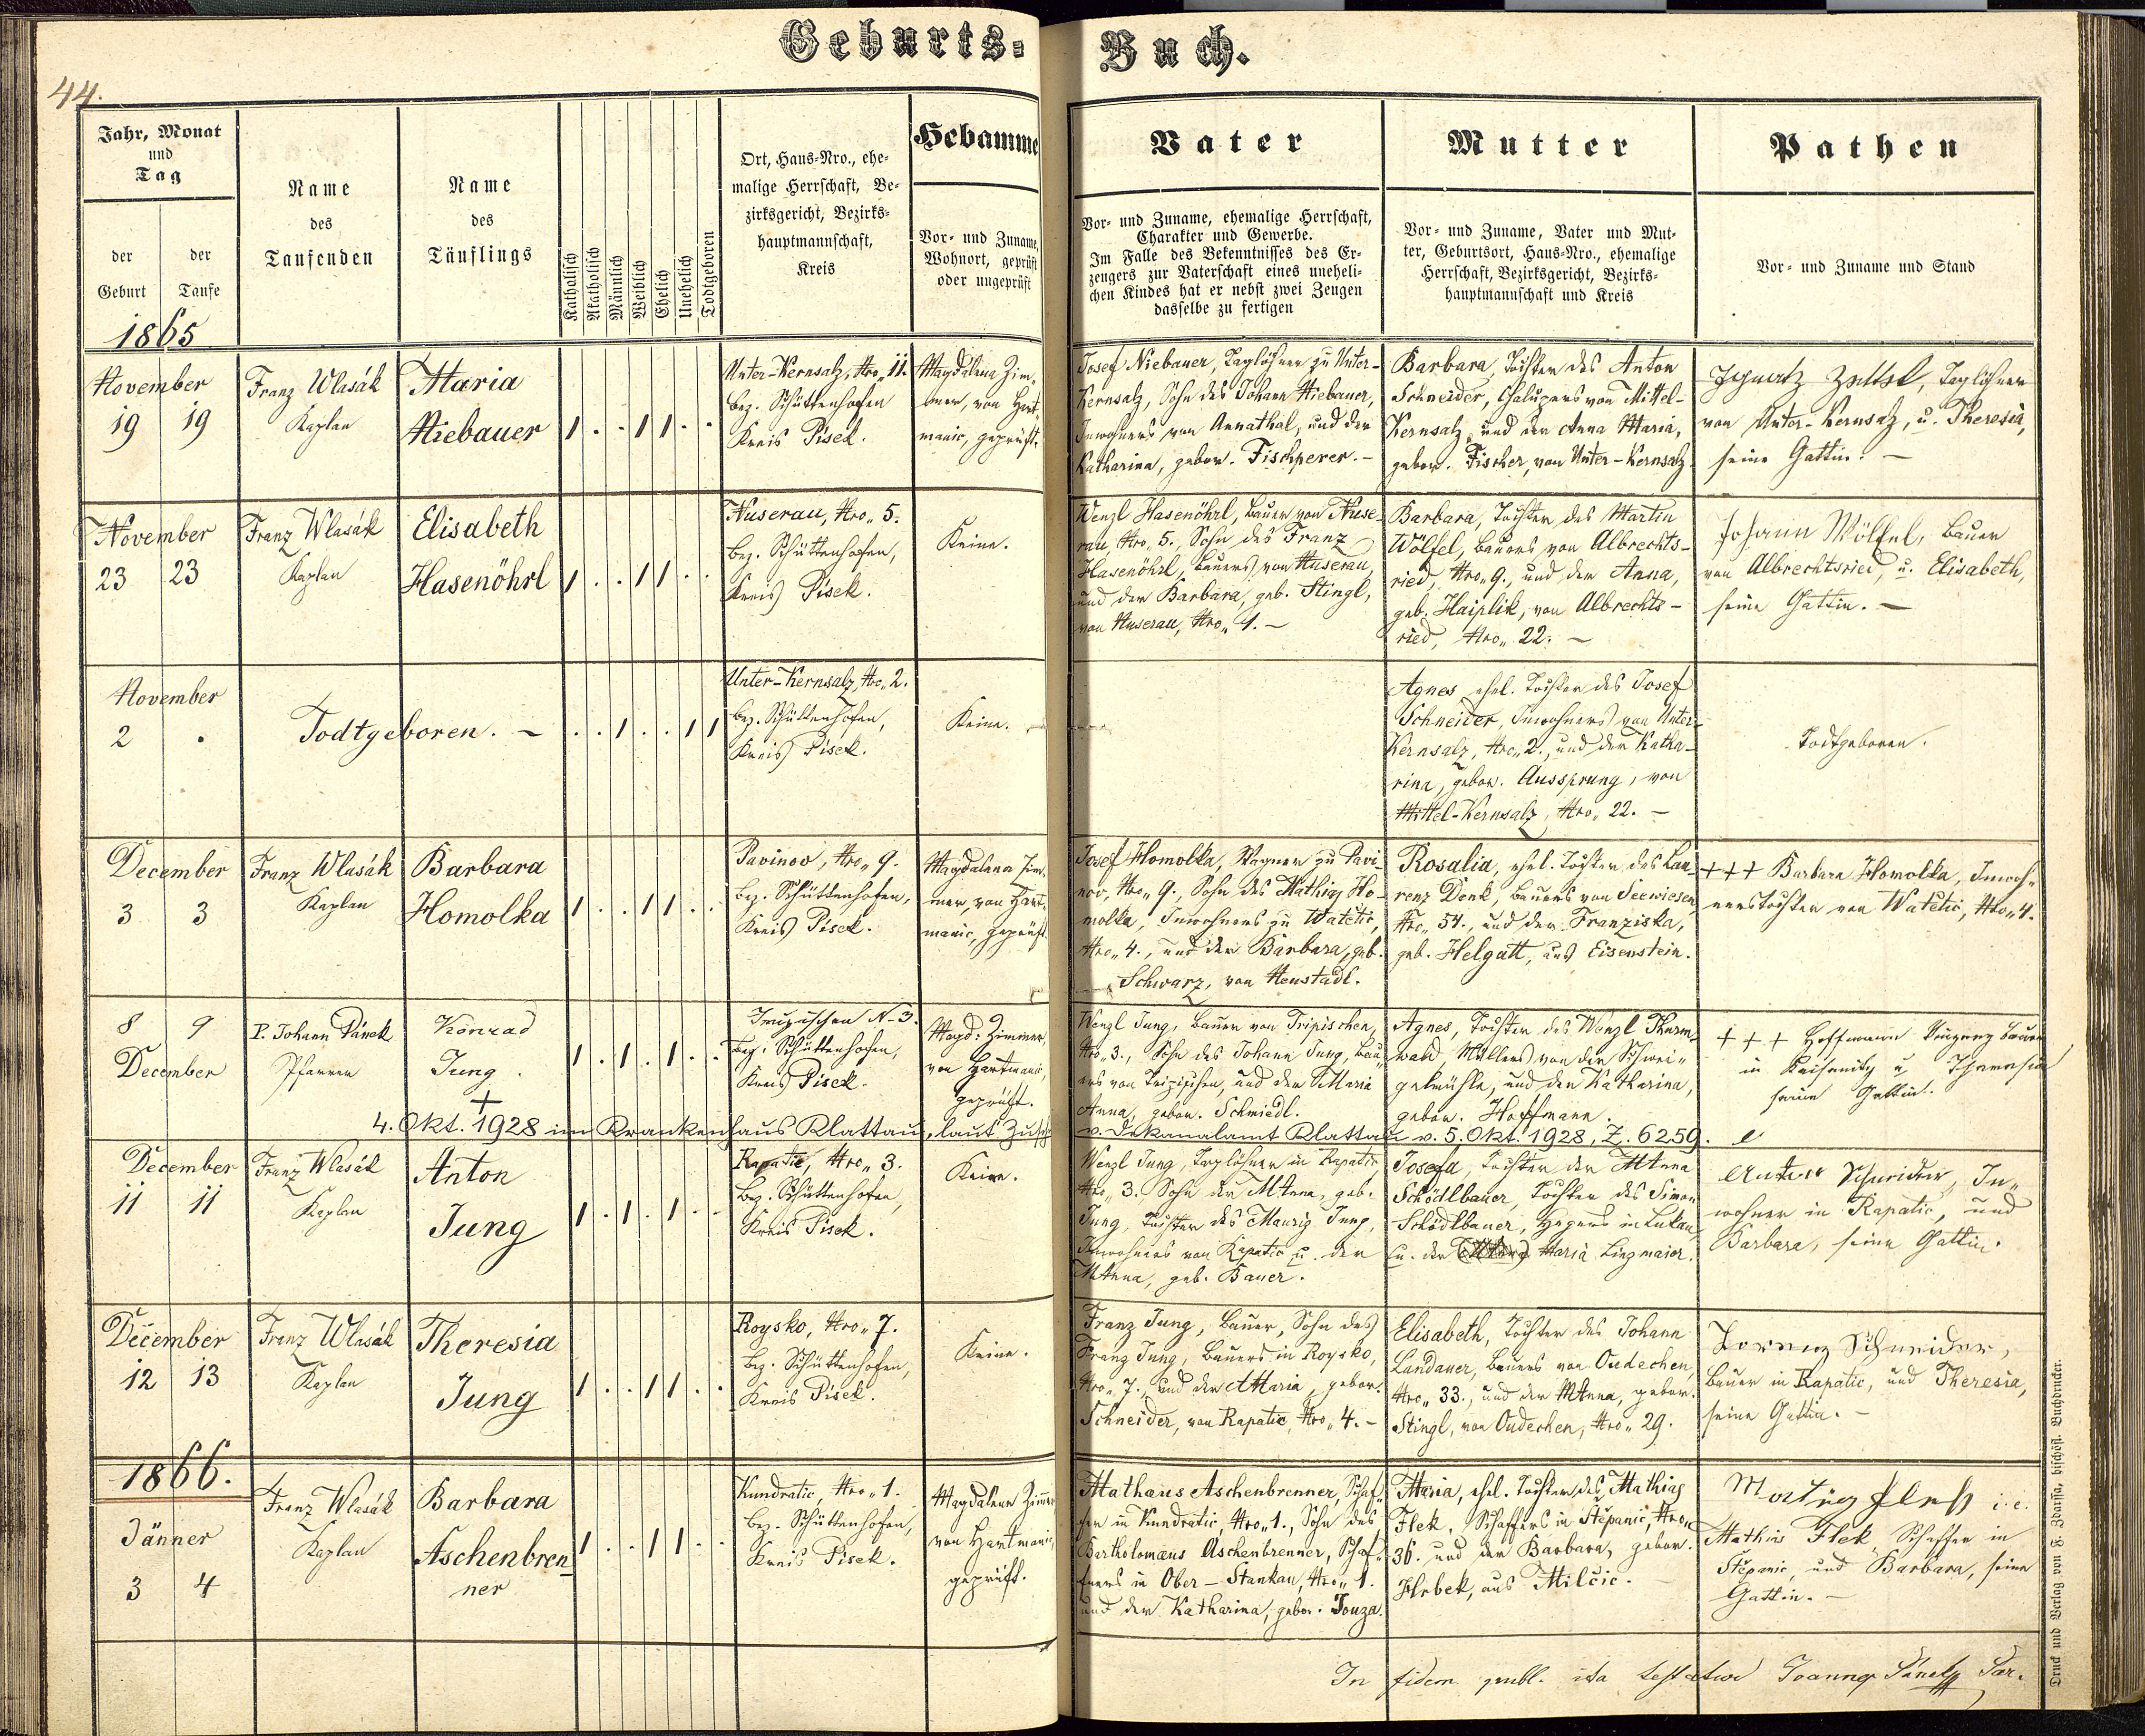 Geburts-Buch.
44.
Jahr, Monat
und
Tag
der
Geburt
der
Taufe
Name
des
Taufenden
Name
des
Täuflings
Katholisch
Akatholisch
Männlich
Weiblich
Ehelich
Unehelich
Todtgeboren
Ort, Haus-Nro., ehe-
malige Herrschaft, Be-
zirksgericht, Bezirks-
hauptmannschaft,
Kreis
Hebamme
Vor- und Zuname,
Wohnort, geprüft
oder ungeprüft
Vater
Vor- und Zuname, ehemalige Herrschaft,
Charakter und Gewerbe.
Im Falle des Bekenntnisses des Er-
zeugers zur Vaterschaft eines uneheli-
chen Kindes hat er nebst zwei Zeugen
dasselbe zu fertigen
Mutter
Vor- und Zuname, Vater und Mut-
ter, Geburtsort, Haus-Nro., ehemalige
Herrschaft, Bezirksgericht, Bezirks-
hauptmannschaft und Kreis
Pathen
Vor- und Zuname und Stand
1865
November
19 19
Franz Wlasák
Kaplan
Maria
Niebauer
1 . . 1 1 . .
Unter-Kernsalz, Nro. 11.
Bez. Schüttenhofen
Kreis Pisek.
Magdalena Zim-
mer, von Hart-
manic, geprüft.
Josef Niebauer, Taglöhner zu Unter-
Kernsalz, Sohn des Johann Niebauer,
Inwohners von Annathal, und der
Katharina, gebor. Fischperer. -
Barbara, Tochter des Anton
Schneider, Chalupers von Mittel-
Kernsalz, und der Anna Maria,
gebor. Fischer, von Unter-Kernsalz
Ignatz Zettl, Taglöhner
von Unter-Kernsalz, u. Theresia,
seine Gattin. -
November
23 23
Franz Wlasák
Kaplan
Elisabeth
Hasenöhrl
1 . . 1 1 . .
Nuserau, Nro. 5.
Bez. Schüttenhofen,
Kreis Pisek.
Keine.
Wenzl Hasenöhrl, Bauer von Nuse-
rau, Nro. 5., Sohn des Franz
Hasenöhrl, Bauers von Nuserau,
und der Barbara, geb. Stingl,
von Nuserau, Nro. 1. -
Barbara, Tochter des Martin
Wölfel, Bauers von Albrechts-
ried, Nro. 9., und der Anna,
geb. Haiplik, von Albrechts-
ried, Nro. 22. -
Johann Wölfel, Bauer
von Albrechtsried, u. Elisabeth,
seine Gattin. -
November
2 .
Todtgeboren. -
. . 1 . . 1 1
Unter-Kernsalz, Nro. 2.
Bez. Schüttenhofen,
Kreis Pisek.
Keine.
Agnes, ehel. Tochter des Josef
Schneider, Inwohners von Unter-
Kernsalz, Nro. 2., und der Katha-
rina, gebor. Aussprung, von
Mittel-Kernsalz, Nro. 22. -
Todtgeboren.
December
3 3
Franz Wlasák
Kaplan
Barbara
Homolka
1 . . 1 1 . .
Pavinov, Nro. 9.
Bez. Schüttenhofen,
Kreis Pisek.
Magdalena Zim-
mer, von Hart-
manic, geprüft.
Josef Homolka, Wagner zu Pavi-
nov, Nro. 9., Sohn des Mathias Ho-
molka, Inwohners zu Watětic,
Nro. 4., und der Barbara, geb.
Schwarz, von Neustadl.
Rosalia, ehel. Tochter des Lau-
renz Denk, Bauers von Seewiesen,
Nro. 54., und der Franziska,
geb. Helgatt, aus Eisenstein.
+++ Barbara Homolka, Inwoh-
nerstochter von Watětic, Nro. 4.
8 9
December
P. Johann Pánek
Pfarrer
Konrad
Jung.
1 . 1 . 1 . .
N. 3.
Bez. Schüttenhofen,
Kreis Pisek.
Magd: Zimmer,
von Hartmanic,
geprüft.
Wenzl Jung, Bauer von Tripischen,
Nro. 3., Sohn des Johann Jung, Bau-
ers von Tripischen, und der Maria
Anna, gebor. Schmiedl.
Agnes, Tochter des Wenzl Thurm-
wald, Müllers von der Schwei-
gelmühle, und der Katharina,
gebor. Hoffmann.
+ + + Hoffmann Bauer
in u Theresia
seine Gattin.
+
4. Okt. 1928 im Krankenhaus Klattau, laut
v. Dekanalamt Klattau v. 5. Okt. 1928, Z. 6259.
December
11 11
Franz Wlasák
Kaplan
Anton
Jung
1 . 1 . 1 . .
Rapatic, Nro. 3.
Bez. Schüttenhofen,
Kreis Pisek.
Keine.
Wenzl Jung, Taglöhner in Rapatic,
Nro. 3., Sohn der MAnna, geb.
Jung, Tochter des Mauriz Jung,
Inwohners von Rapatic u. der
MAnna, geb. Bauer.
Josefa, Tochter der MAnna
Schödlbauer, Tochter des Simon
Schödlbauer, Hegers in Lukau,
u. der Maria Linzmaier.
Anton Schneider, In-
wohner in Rapatic, und
Barbara, seine Gattin.
December
12 13
Franz Wlasák
Kaplan
Theresia
Jung
1 . . 1 1 . .
Roysko, Nro. 7.
Bez. Schüttenhofen,
Kreis Pisek.
Keine.
Franz Jung, Bauer, Sohn des
Franz Jung, Bauers in Roysko,
Nro. 7., und der AMaria, gebor.
Schneider, von Rapatic, Nro. 4. -
Elisabeth, Tochter des Johann
Landauer, Bauers von Oudechen,
Nro. 33., und der MAnna, gebor.
Stingl, von Oudechen, Nro. 29.
Lorenz Schneider,
Bauer in Rapatic, und Theresia,
seine Gattin. -
1866.
Jänner
3 4
Franz Wlasák
Kaplan
Barbara
Aschenbren-
ner
1 . . 1 1 . .
Kundratic, Nro. 1.
Bez. Schüttenhofen,
Kreis Pisek.
Magdalena Zimmer
von Hartmanic,
geprüft.
Mathäus Aschenbrenner, Schaf-
fer in Kundratic, Nro. 1., Sohn des
Bartholomäus Aschenbrenner, Schaf-
fners in Ober-Stankau, Nro. 1.
und der Katharina, gebor. Touza.
Maria, ehel. Tochter des Mathias
Flek, Schaffers in Štěpanic, Nro.
36. und der Barbara, gebor.
Hrbek, aus Milčic.
i. e.
Mathias Flek, Schaffer in
Štěpanic, und Barbara, seine
Gattin. -
In fidem publ. ita testatur Joannes Pánek Par.
Druck und Verlag von F. Zdarssa, bischöfl. Buchdrucker.